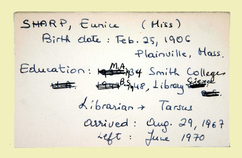 SHARP, Eunice (Miss)
Birth date: Feb. 25, 1906
Plainville, Mass.
Education: M.A. '34 Smith College
B.S. '48, Library Science
Librarian → Tarsus
arrived: Aug. 29, 1967
left: June 1970